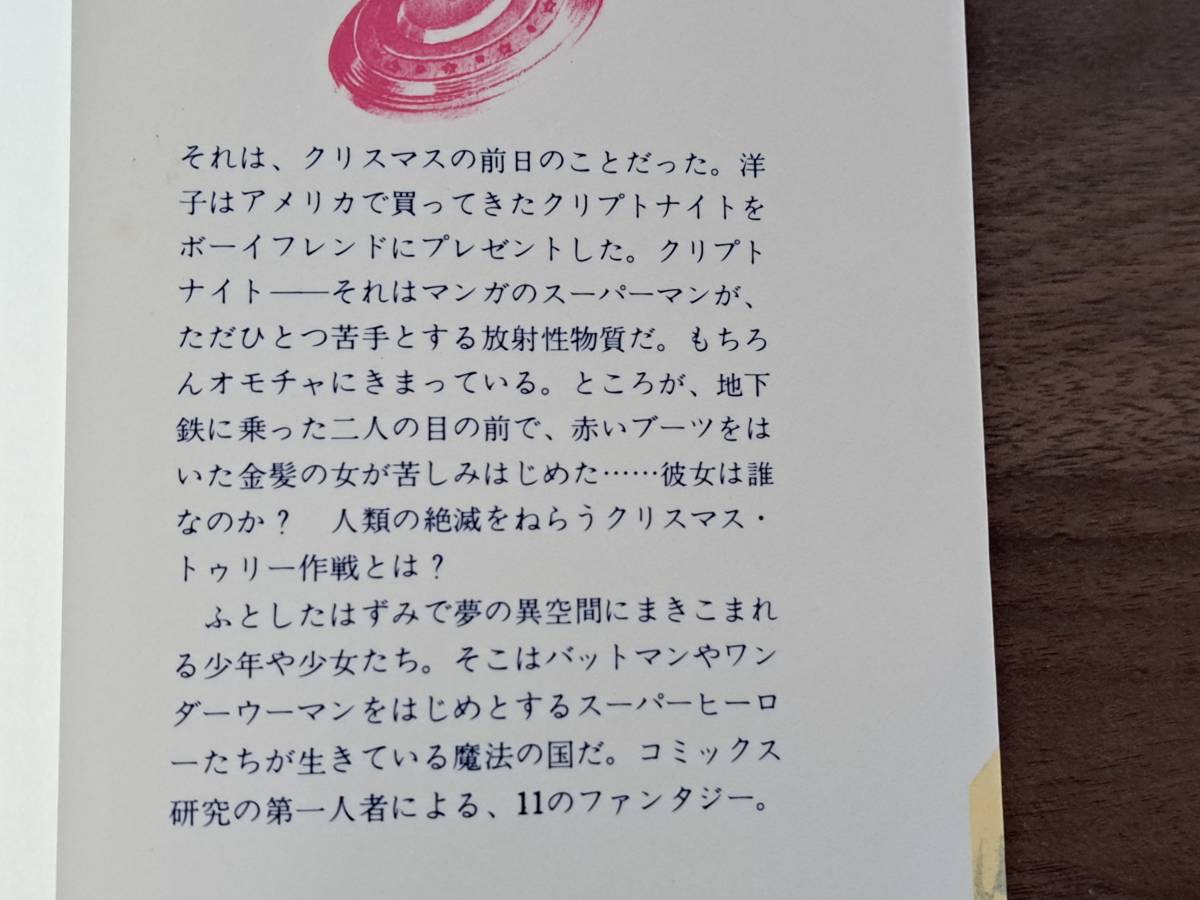 それは、クリスマスの前日のことだった。洋
子はアメリカで買ってきたクリプトナイトを
ボーイフレンドにプレゼントした。クリプト
ナイト――それはマンガのスーパーマンが、
ただひとつ苦手とする放射性物質だ。もちろ
んオモチャにきまっている。ところが、地下
鉄に乗った二人の目の前で、赤いブーツをは
いた金髪の女が苦しみはじめた……彼女は誰
なのか？　人類の絶滅をねらうクリスマス・
トゥリー作戦とは？
　ふとしたはずみで夢の異空間にまきこまれ
る少年や少女たち。そこはバットマンやワン
ダーウーマンをはじめとするスーパーヒーロ
ーたちが生きている魔法の国だ。コミックス
研究の第一人者による、11のファンタジー。